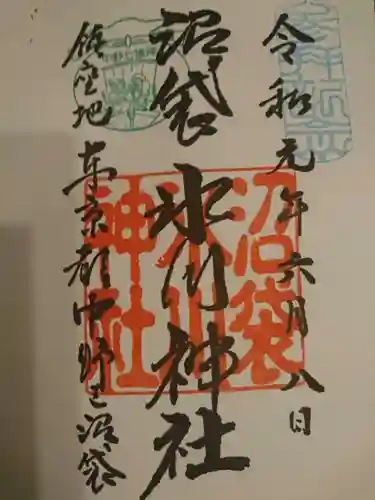 令和元年六月八日
沼袋氷川神社
鎮座地東京都中野区沼袋
沼袋
氷川
神社